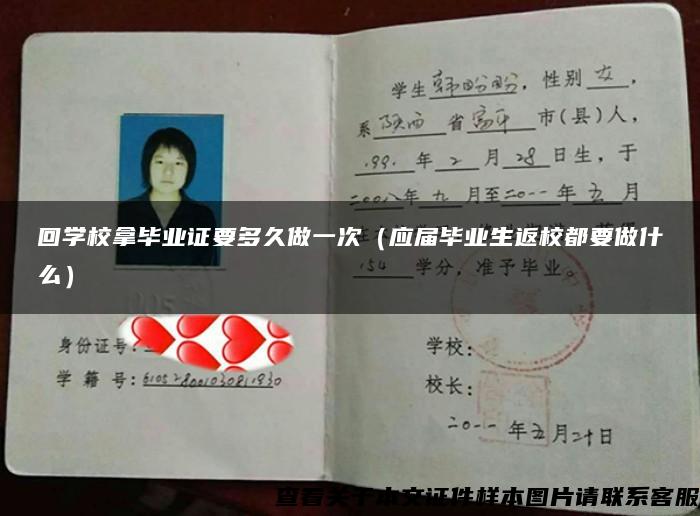 学生韩盼盼，性别女，
系陕西省富平市(县)人，
1991年2月28日生，于
二00八年九月至二0一一年五月
回学校拿毕业证要多久做一次（应届毕业生返校都要做什
么）
154学分，准予毕业。
身份证号：
学籍号：
学校：
校长：
二0一一年五月二十日
查看关于本文证件样本图片请联系客服